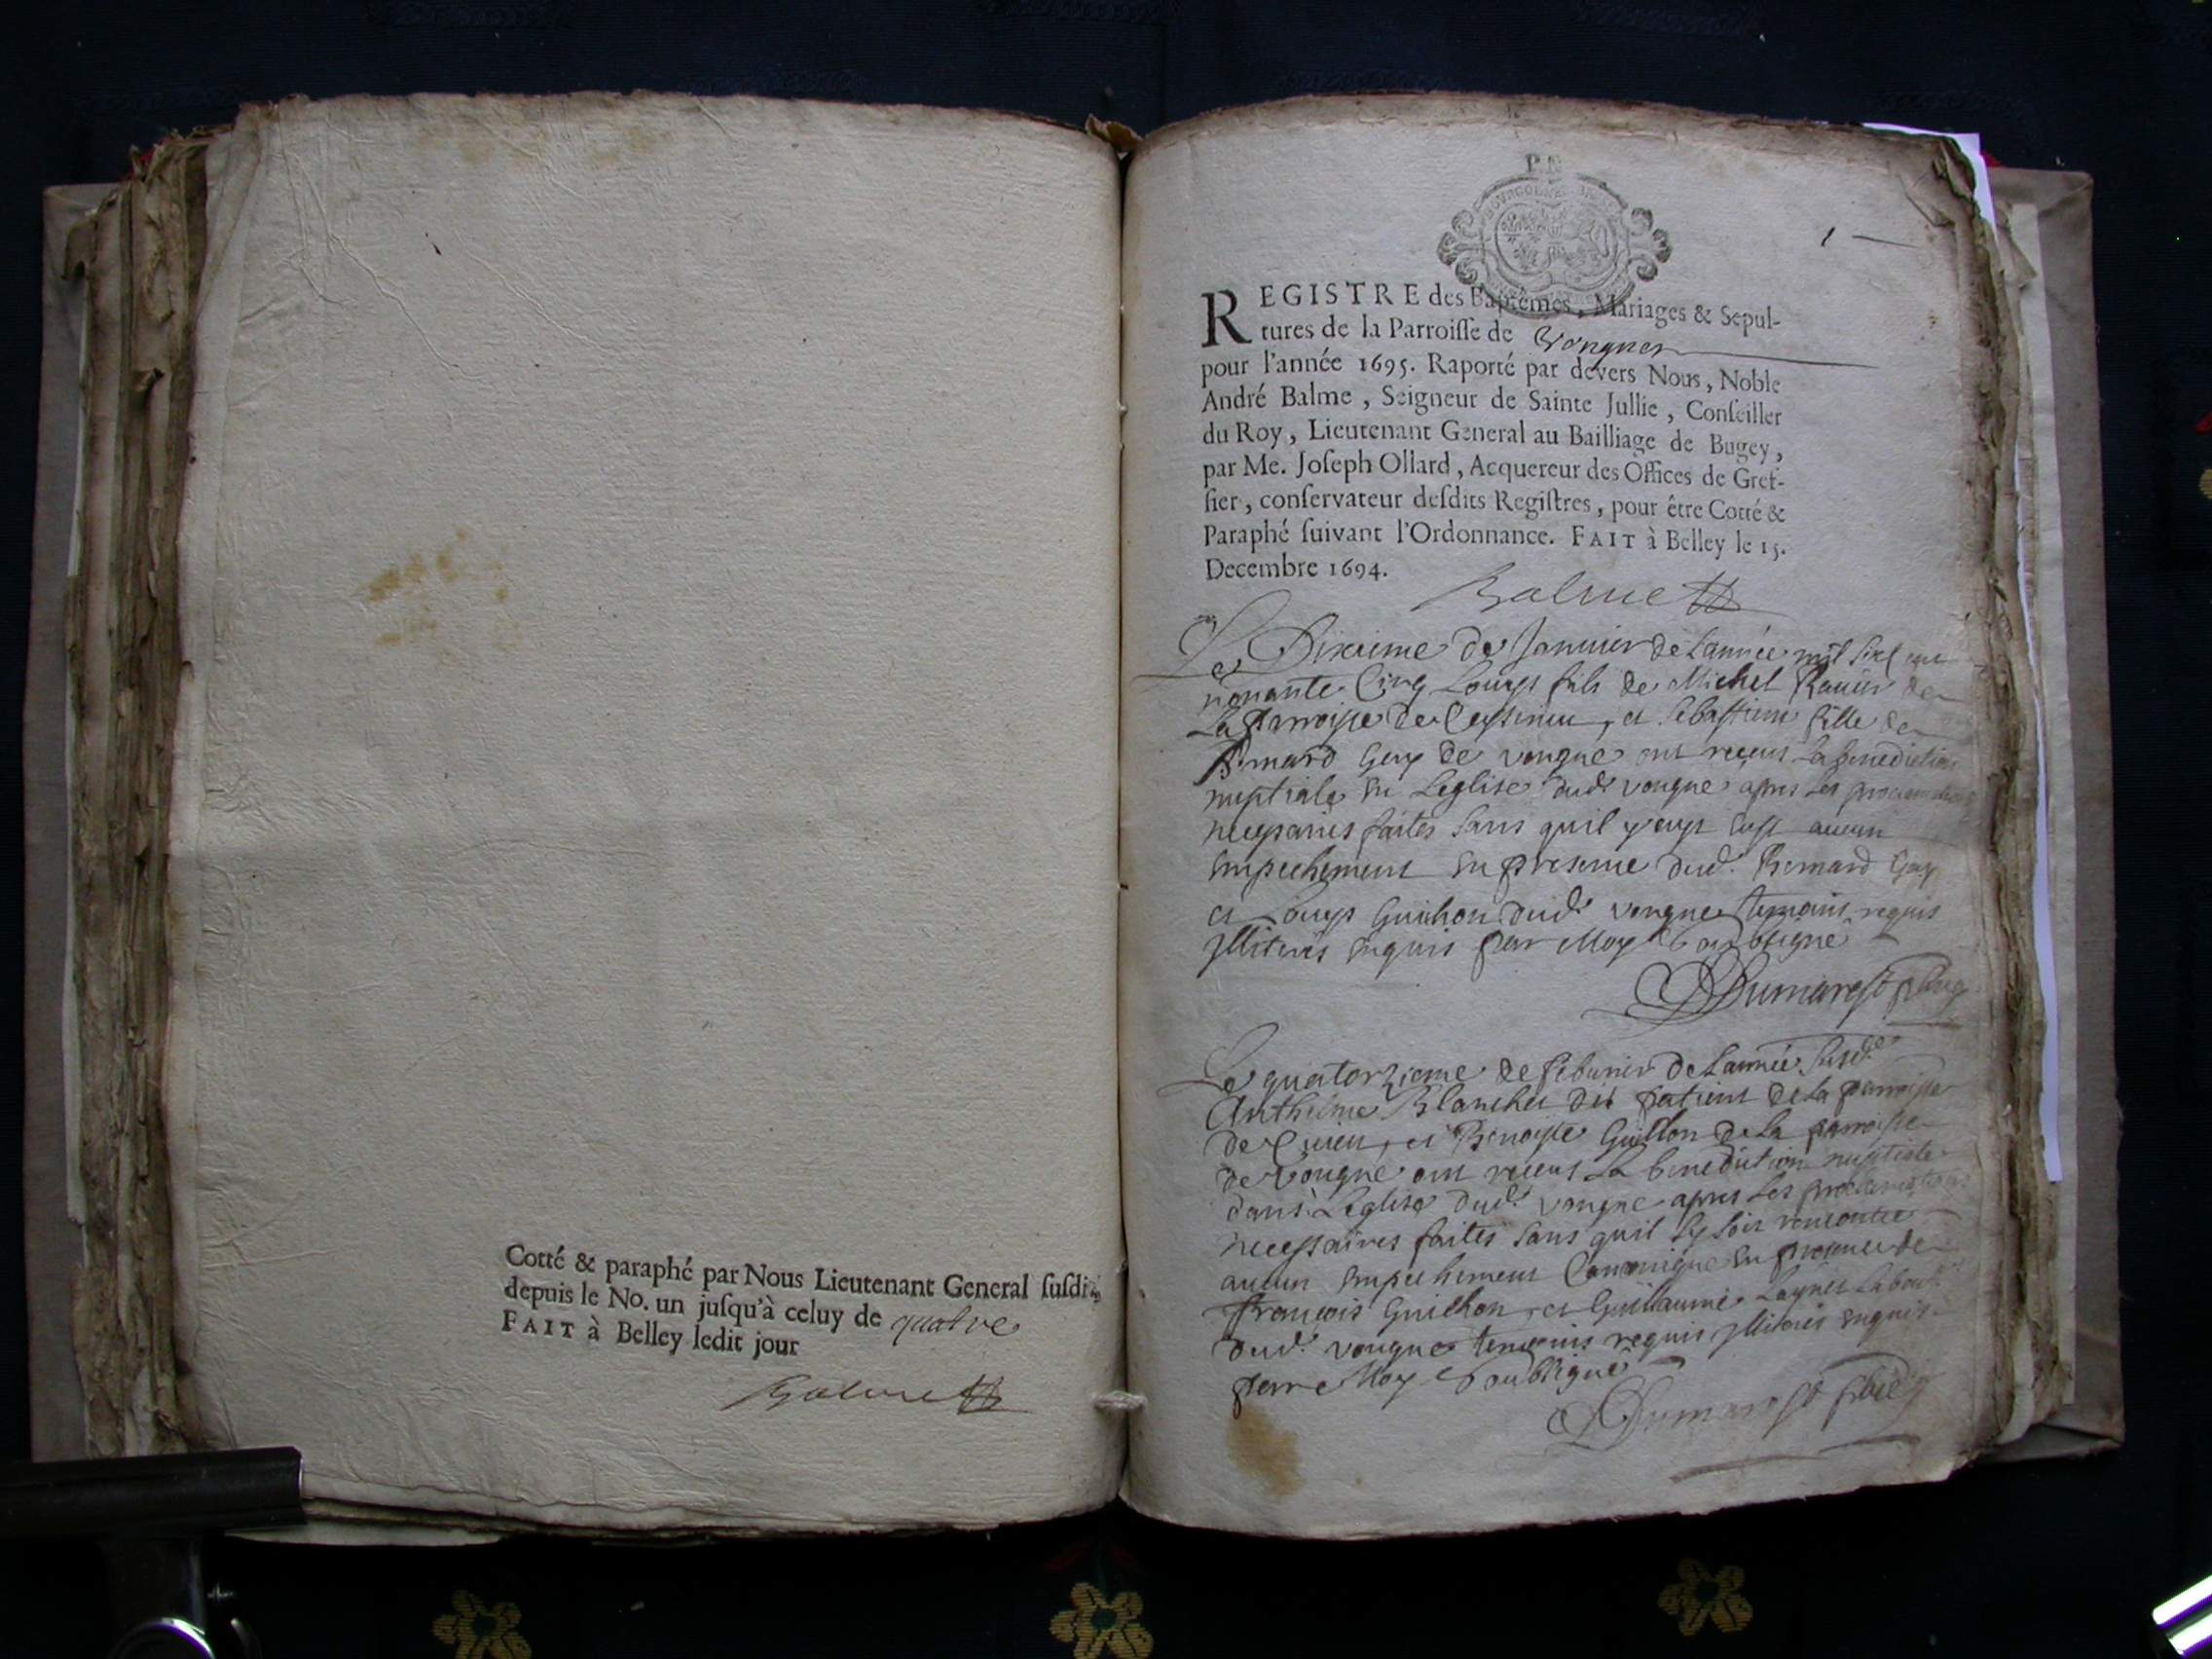 Cotté & paraphé par Nous Lieutenant General ſuſdit
depuis le No. un juſqu'à celuy de quatre
FAIT à Belley ledit jour
Balme
1
REGISTRE des Baptêmes, Mariages & Sepul-
tures de la Parroiſſe de Vongnes
pour l'année 1695. Raporté par devers Nous, Noble
André Balme, Seigneur de Sainte Jullie, Conſeiller
du Roy, Lieutenant General au Bailliage de Bugey,
par Me. Joſeph Ollard, Acquereur des Offices de Gref-
fier, conſervateur deſdits Regiſtres, pour être Cotté &
Paraphé ſuivant l'Ordonnance. FAIT à Belley le 15.
Decembre 1694.
Balme
Le Dixieme de Januier de Lannée mil six cent
nonante Cinq Louys fils de Michel Rauier de
La parroisse de Ceysirieu, et sebastiene fille de
Bernard Guy de vongne ont receus La benediction
nuptiale en Leglise dud. vongne apres Les proclamations
necessaires faites sans quil y aye eust aucun
empechement en presence dud. Bernard Guy
et Louys Guichon dud. vongne temoins requis
illiteres enquis par Moy soubsigné
Dumarest
Le quatorzieme de feburier de Lannée susd.
Anthelme Blanchet dit patient de La parroisse
de Cuzieu, et Benoyte Guillon de La parroisse
de vongne ont receus La benediction nuptiale
dans Leglise dud. vongne apres Les proclamations
necessaires faites sans quil sy soit rencontre
aucun empechement Canonique en presence de
francois Guichon, et Guillaume
dud. vongne temoins requis illiteres enquis
par Moy soubsigné
Dumarest